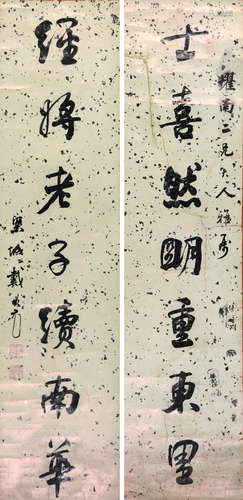 耀南二兄大人雅屬
士喜然明重東里
經將老子續南華
戴